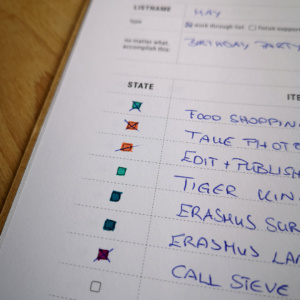 LISTNAME MAY
type work through list focus support
no matter what, accomplish this: BIRTHDAY PARTY
STATE ITE
FOOD SHOPPING
TAKE PHOTO
EDIT + PUBLISH
TIGER KIN
ERASMUS SUR
ERASMUS LA
CALL STEVE